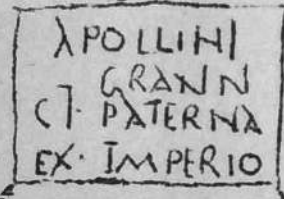 APOLLINI
GRANN
CT. PATERNA
EX· IMPERIO